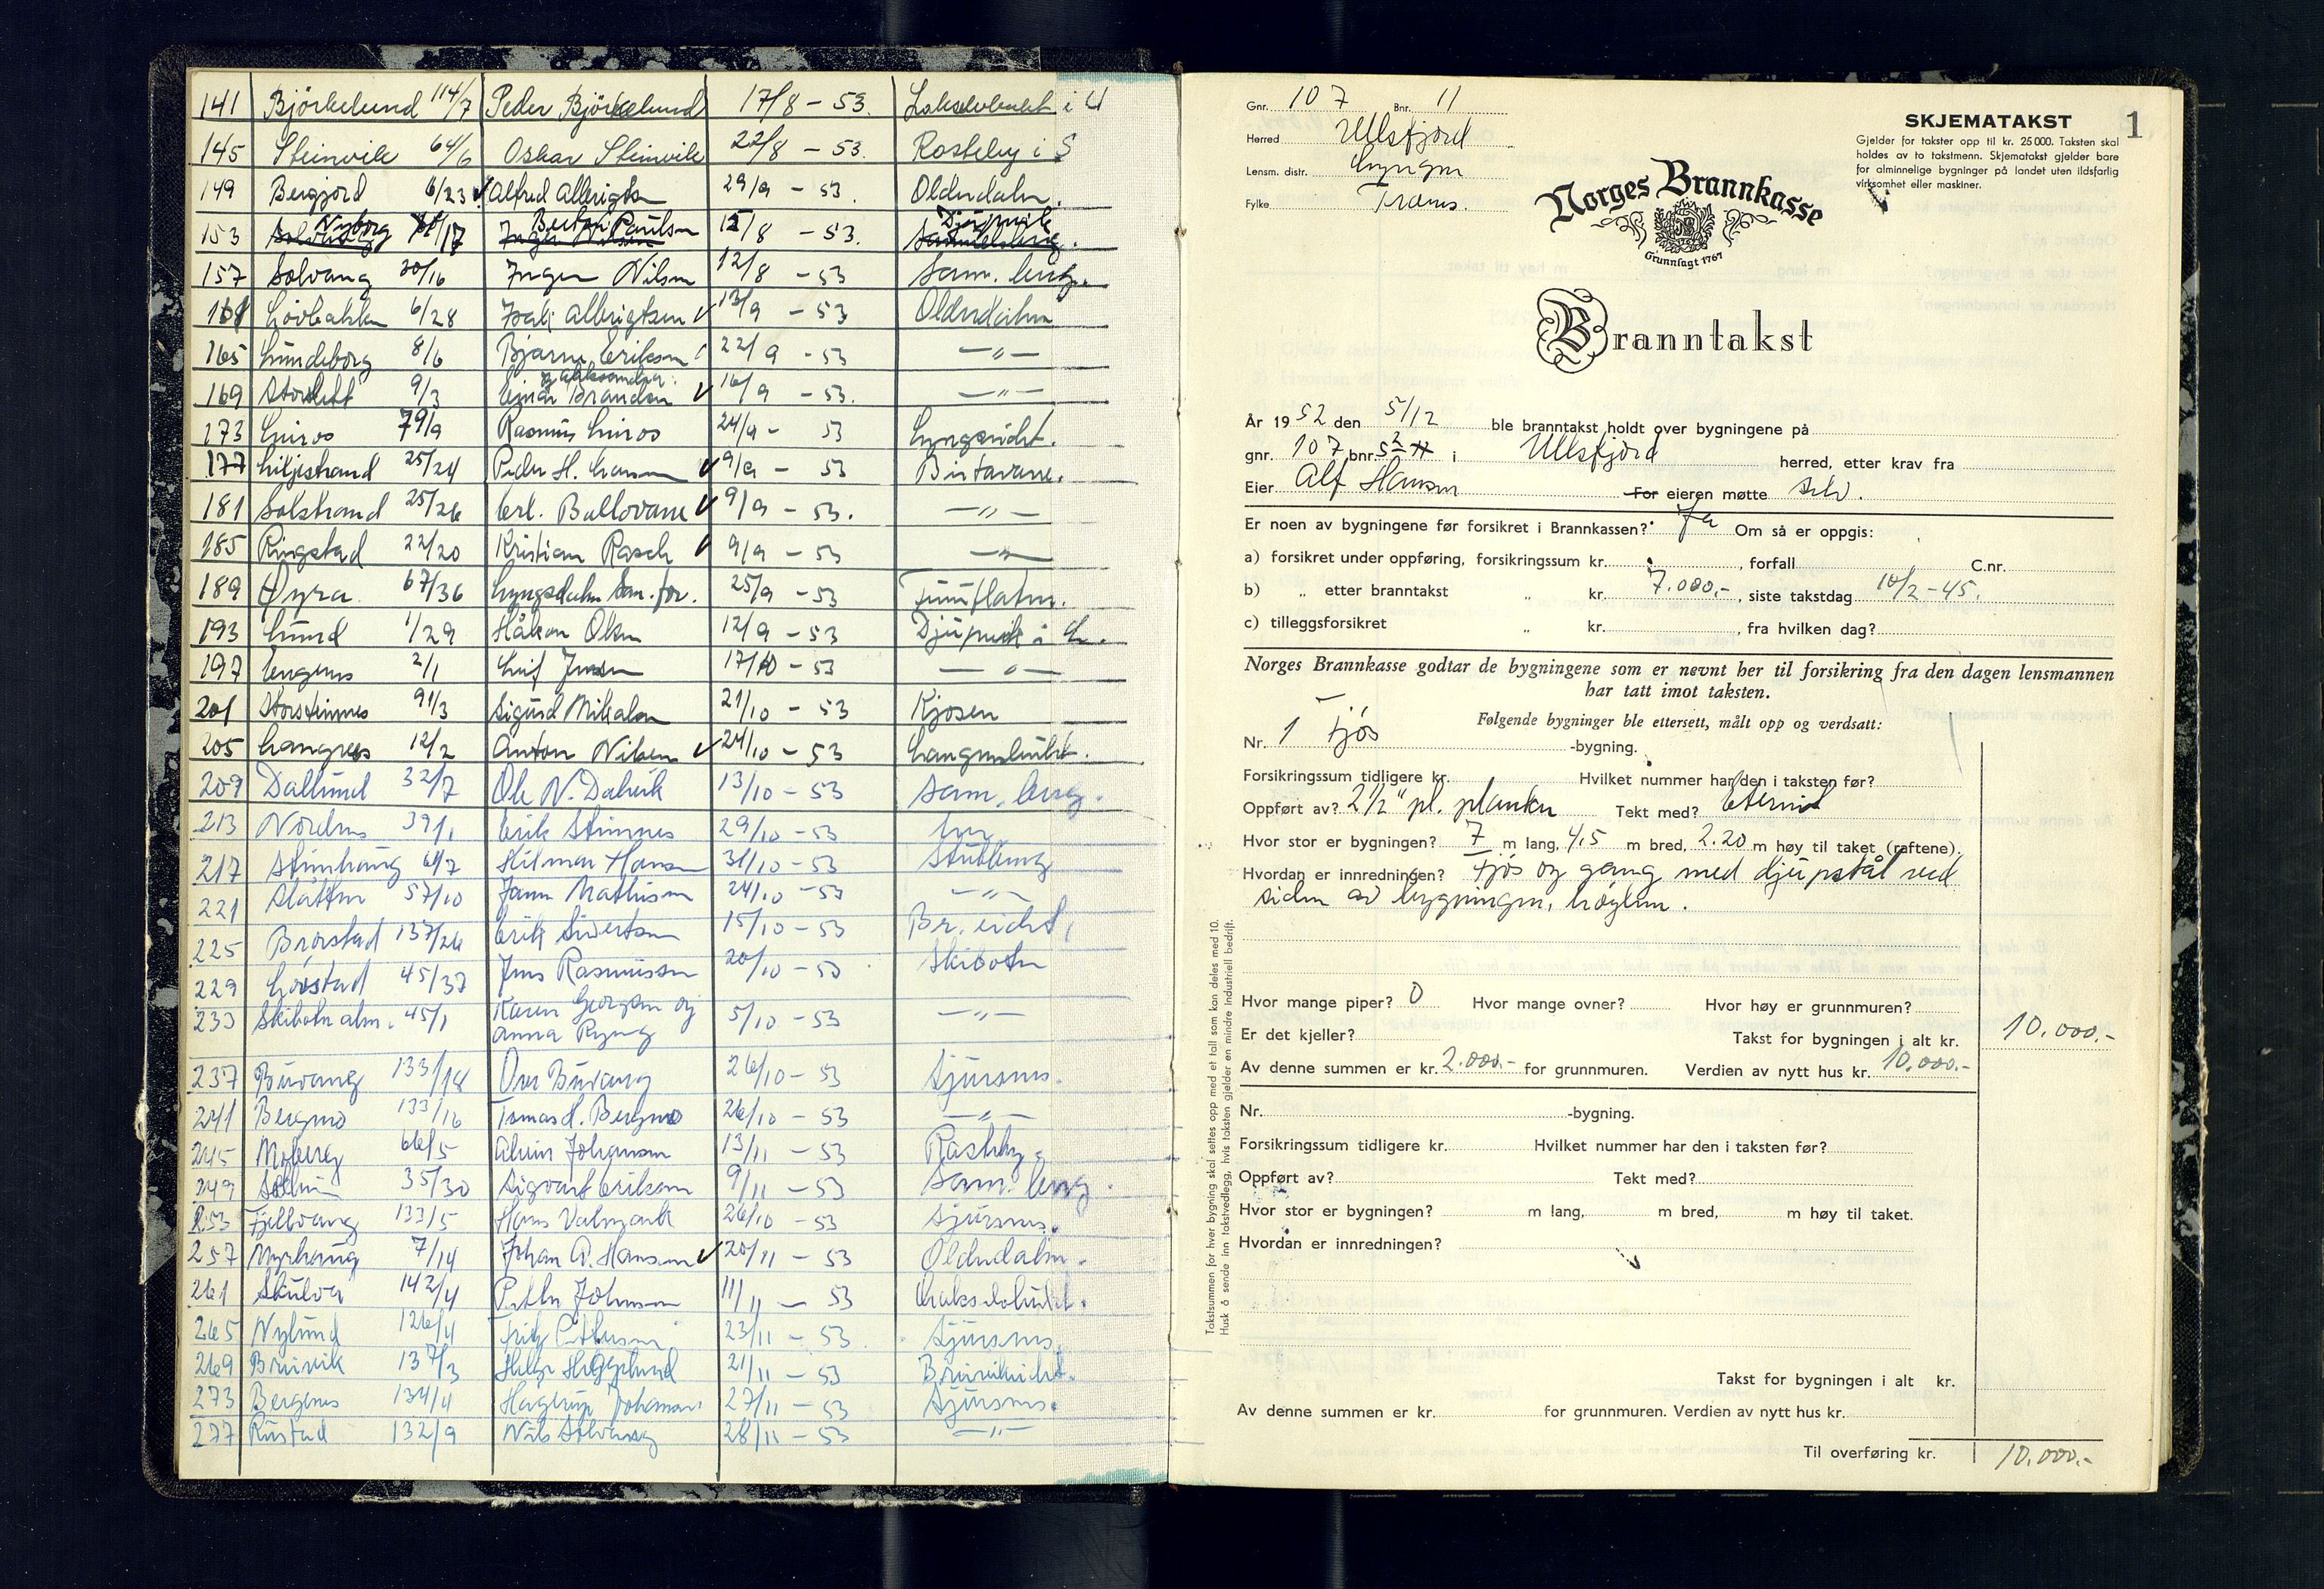 141 Björkelund 114/7 Peder Björkelund 17/8 - 53. i U
145 Steinvik 64/6 Oskar Steinvik 22/8 - 53. Rasteby i S
149 Bergjord 6/23 Alfred Albrigtsn 29/9 - 53. Olderdalen.
153 Nyborg /17 Paulsn 15/8 - 53. Djupvik
157 Solvang 30/16 Inger Nilsen 12/8 - 53 Sam. berg.
161 Lövbakken 6/28 Albrigtsen 13/9 - 53 Olderdalen
165 Lundeborg 8/6 Bjarne Eriksen 22/9 - 53 - " -
169 Storslett 9/3 Einar Brandsn 16/9 - 53. - " -
173 79/9 Rasmus 24/9 - 53 Lyngseidet.
177 Liljestrand 25/24 Peder H. Hansen 9/9 - 53 Birtavarre.
181 Solstrand 25/26 Erl. Ballovarre 9/9 - 53. - " -
185 Ringstad 22/20 Kristian Rasch 9/9 - 53 - " -
189 Øyra 67/36 Lyngsdalen San. for. 25/9 - 53
193 Lund 1/29 Håkon Olsen 12/9 - 53 Djupvik i L.
197 Engenes 2/1 Leif Jensen 17/10 - 53 - " -
201 Storsteinnes 91/3 Sigurd Mikalsn 21/10 - 53 Kjosen
205 Langnes 12/2 Anton Nilsen 24/10 - 53 Langneslucht.
209 Dallund 32/7 Ole N. Dalvik 13/10 - 53 Sam. berg.
213 Nordnes 39/1 Erik Steinnes 29/10 - 53
217 Steinhaug 61/7 Hilmar Hansen 31/10 - 53
221 Slåtten 57/10 Mathisen 24/10 - 53 - " -
225 137/26 Erik Sivertsen 15/10 - 53 Br. eidet
229 Lövstad 45/37 Jens Rasmussen 20/10 - 53 Skibotn
233 Skibotn alm. 45/1 Karen Georgsen og
Anna Ryeng 5/10 - 53 - " -
237 Buvang 133/18 Buvang 26/10 - 53 Sjursnes.
241 Bergmo 133/16 Tomas H. Bergmo 26/10 - 53 - " -
245 Moberg 66/5 Alvin Johansen 13/11 - 53 Rasteby
249 35/30 Sigvart Eriksen 9/11 - 53 Sam. berg.
253 Fjellvang 133/5 Hans Valmark 26/10 - 53 Sjursnes.
257 Myrhaug 7/14 Johan A. Hansen 20/11 - 53 Olderdalen.
261 142/4 Petter Johnsen 11/11 - 53
265 Nylund 126/4 Fritz 23/11 - 53 Sjursnes
269 Breivik 137/3 Helge Heggelund 21/11 - 53 Breivikeidet.
273 Bergenes 134/4 Hagerup Johansen 27/11 - 53 Sjursnes.
277 Rustad 132/9 Nils Solvang 28/11 - 53 - " -
Gnr. 107 Bnr. 11
Herred Ullsfjord
Lensm. distr. Lyngen
Fylke Troms.
SKJEMATAKST 1
Gjelder for takster opp til kr. 25 000. Taksten skal
holdes av to takstmenn. Skjematakst gjelder bare
for alminnelige bygninger på landet uten ildsfarlig
virksomhet eller maskiner.
Norges Brannkasse
Grunnlagt 1767
Branntakst
År 1952 den 5/12 ble branntakst holdt over bygningene på
gnr. 107 bnr. 52 i Ullsfjord herred, etter krav fra
Eier Alf Hansen For eieren møtte selv.
Er noen av bygningene før forsikret i Brannkassen? Ja Om så er oppgis:
a) forsikret under oppføring, forsikringssum kr. , forfall C.nr.
b) „ etter branntakst „ kr. 7.000.- , siste takstdag 10/2-45.
c) tilleggsforsikret „ kr. , fra hvilken dag?
Norges Brannkasse godtar de bygningene som er nevnt her til forsikring fra den dagen lensmannen
har tatt imot taksten.
Følgende bygninger ble ettersett, målt opp og verdsatt:
Nr. 1 Fjös -bygning.
Forsikringssum tidligere kr. Hvilket nummer har den i taksten før?
Oppført av? 2½" pl. planker Tekt med? Eternit
Hvor stor er bygningen? 7 m lang, 4,5 m bred, 2.20 m høy til taket (raftene).
Hvordan er innredningen? Fjös og gang med djupstål ved
siden av bygningen, höylem.
Hvor mange piper? 0 Hvor mange ovner? Hvor høy er grunnmuren?
Er det kjeller? Takst for bygningen i alt kr. 10.000.-
Av denne summen er kr. 2.000.- for grunnmuren. Verdien av nytt hus kr. 10.000.-
Nr. -bygning.
Forsikringssum tidligere kr. Hvilket nummer har den i taksten før?
Oppført av? Tekt med?
Hvor stor er bygningen? m lang, m bred, m høy til taket.
Hvordan er innredningen?
Takst for bygningen i alt kr.
Av denne summen er kr. for grunnmuren. Verdien av nytt hus kr.
Til overføring kr. 10.000.-
Takstsummen for hver bygning skal settes opp med et tall som kan deles med 10.
Husk å sende inn takstvedlegg, hvis taksten gjelder en mindre industriell bedrift.